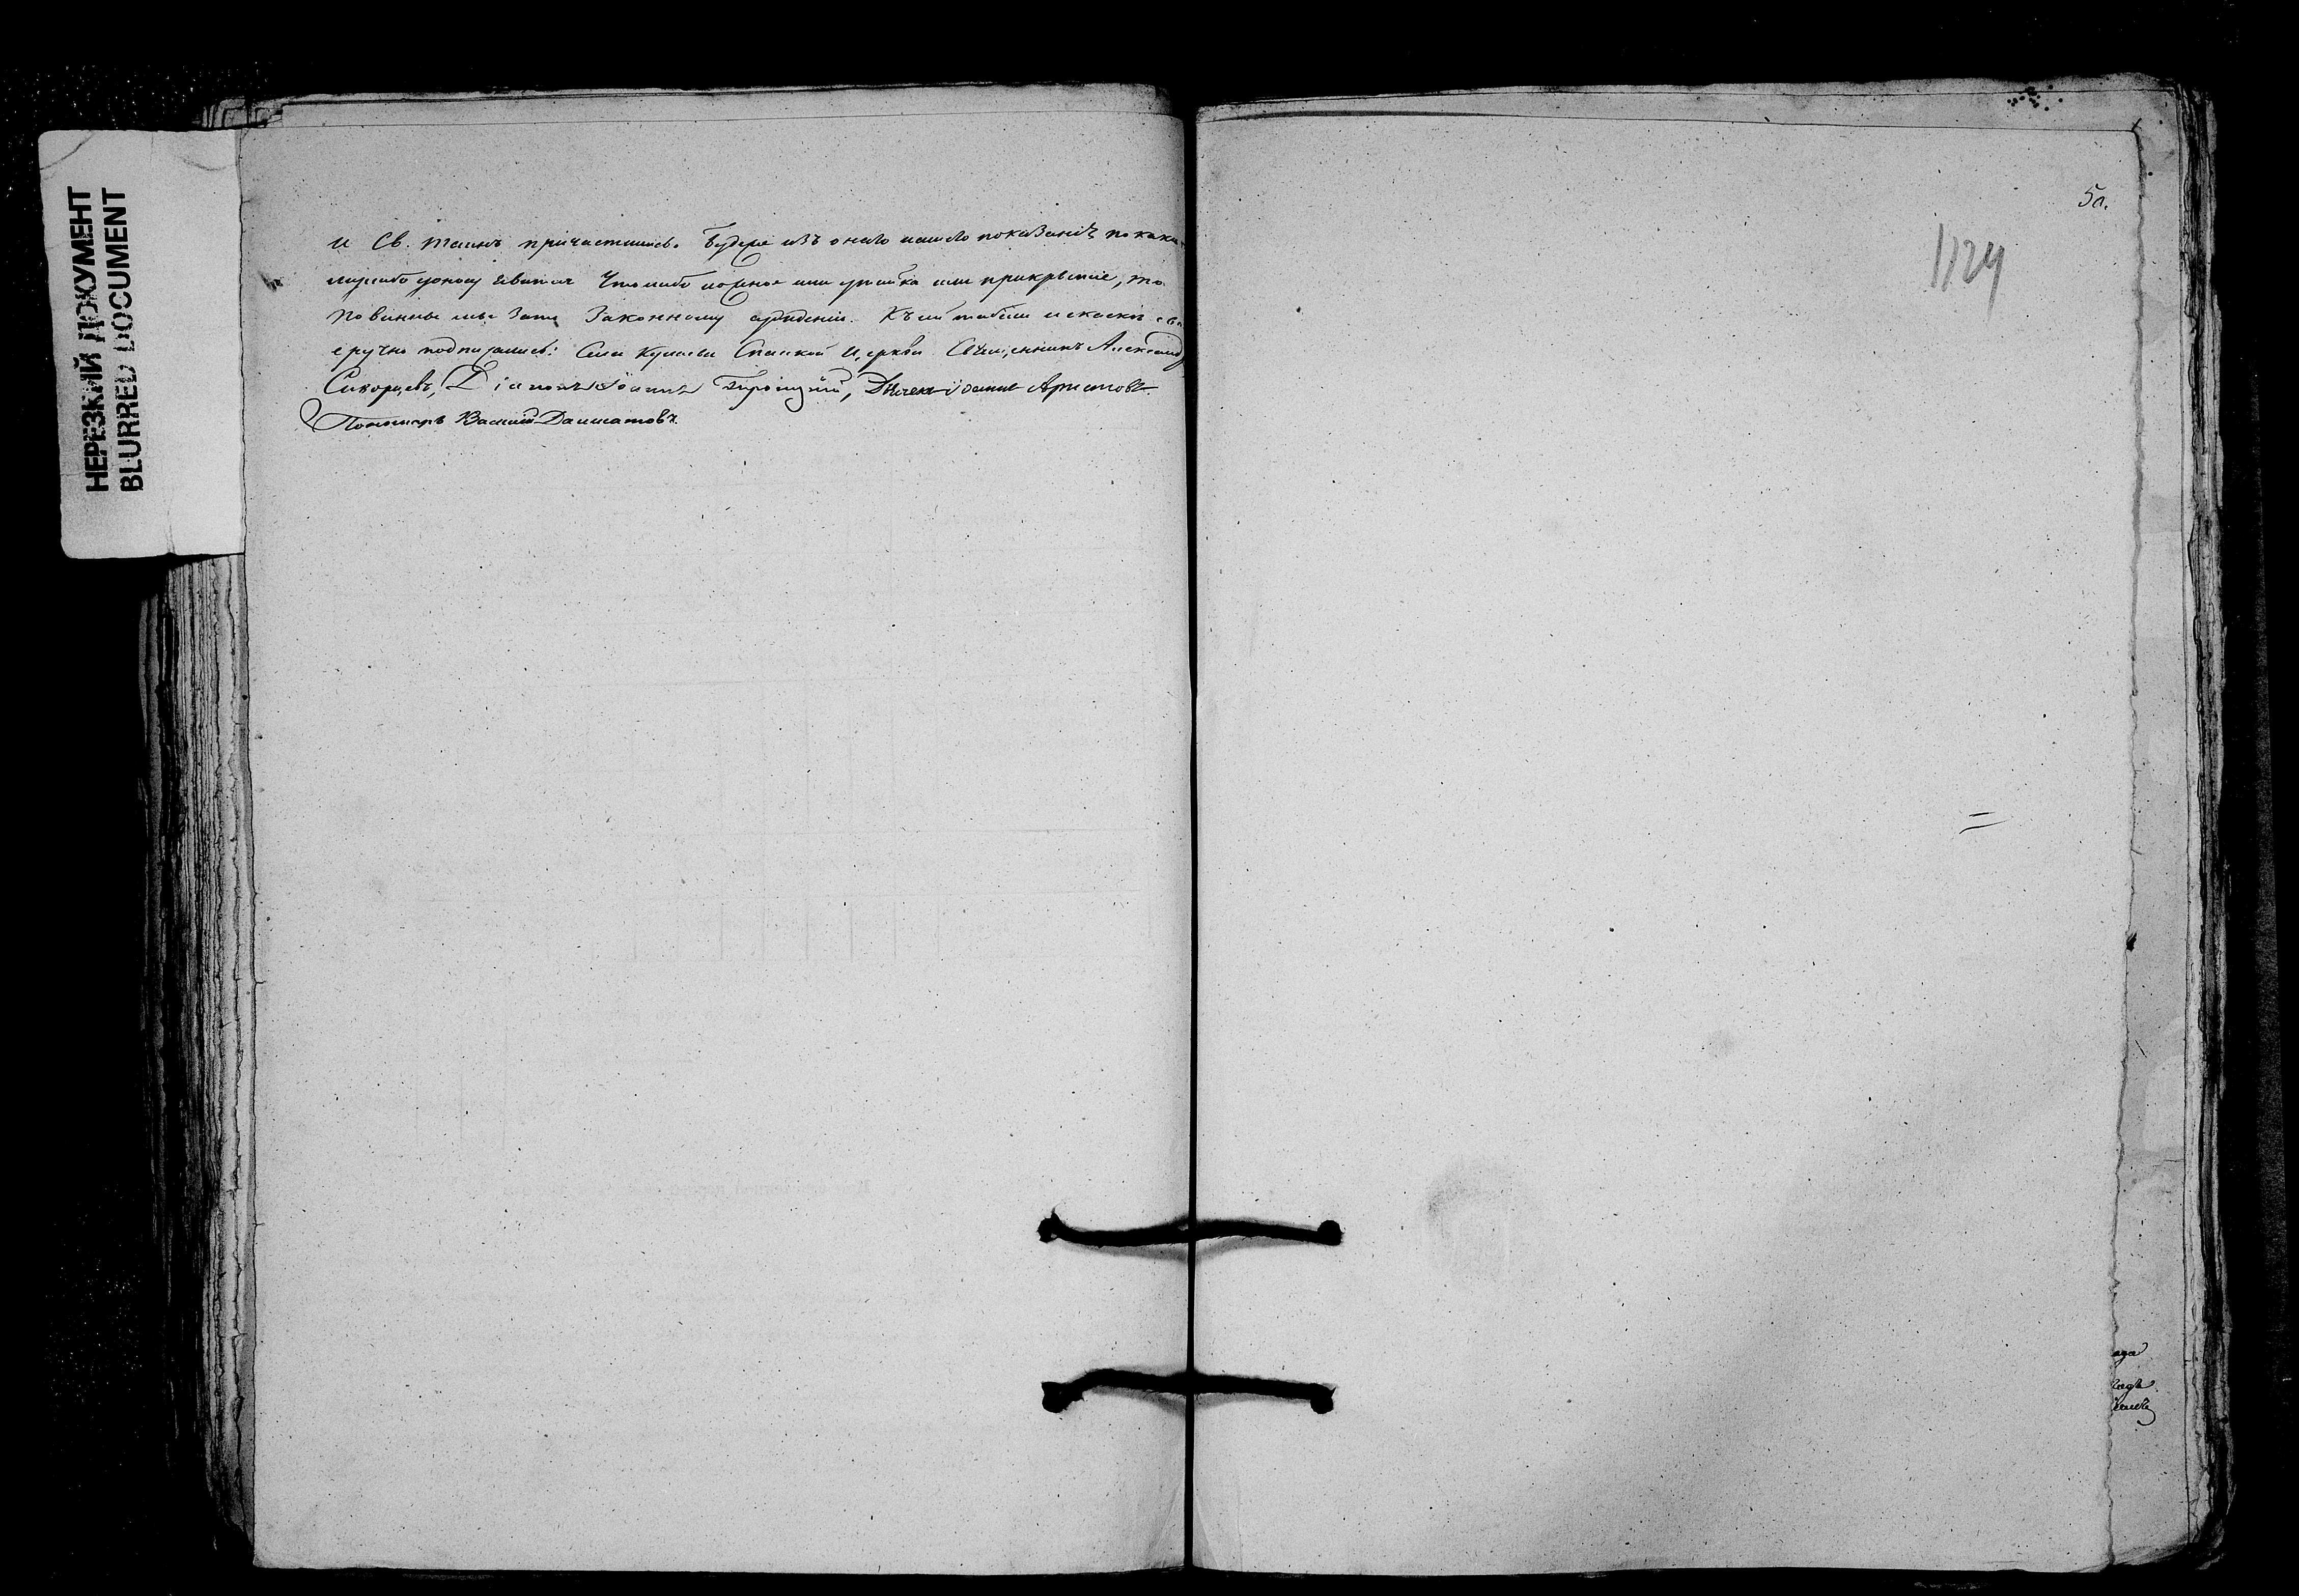 НЕРЕЗКИЙ ДОКУМЕНТ
BLURRED DOCUMENT
и Св. Таинъ причастились. Будеже изъ онаго нашего показанія по какому
либо доносу явится что либо ложное или утайка или прикрытіе, то
повинны мы зато законному сужденію. Къ сей табели и сказкѣ сво
еручно подписались: Села Спаской Церкви Священникъ Александръ
Діаконъ Іоаннъ Дьячекъ Іоаннъ Аристовъ.
Пономарь Василій Далматовъ.
50.
1124